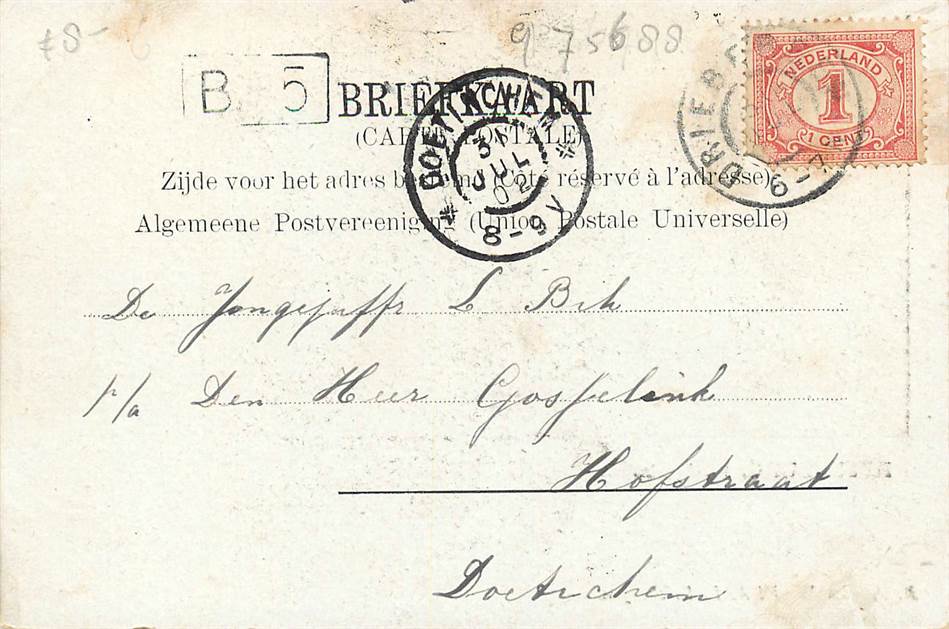 £8-
975688
B 5
BRIEFKAART
(CARTE POSTALE)
NEDERLAND
1
1 CENT
DRIEB
6-7
DOETINCHEM
31
JUL
02
8-9V
Zijde voor het adres bestemd. (Côté réservé à l'adresse)
Algemeene Postvereeniging (Union Postale Universelle)
De Jongejuffr L Bik
p/a Den Heer Gosselink
Hofstraat
Doetichem